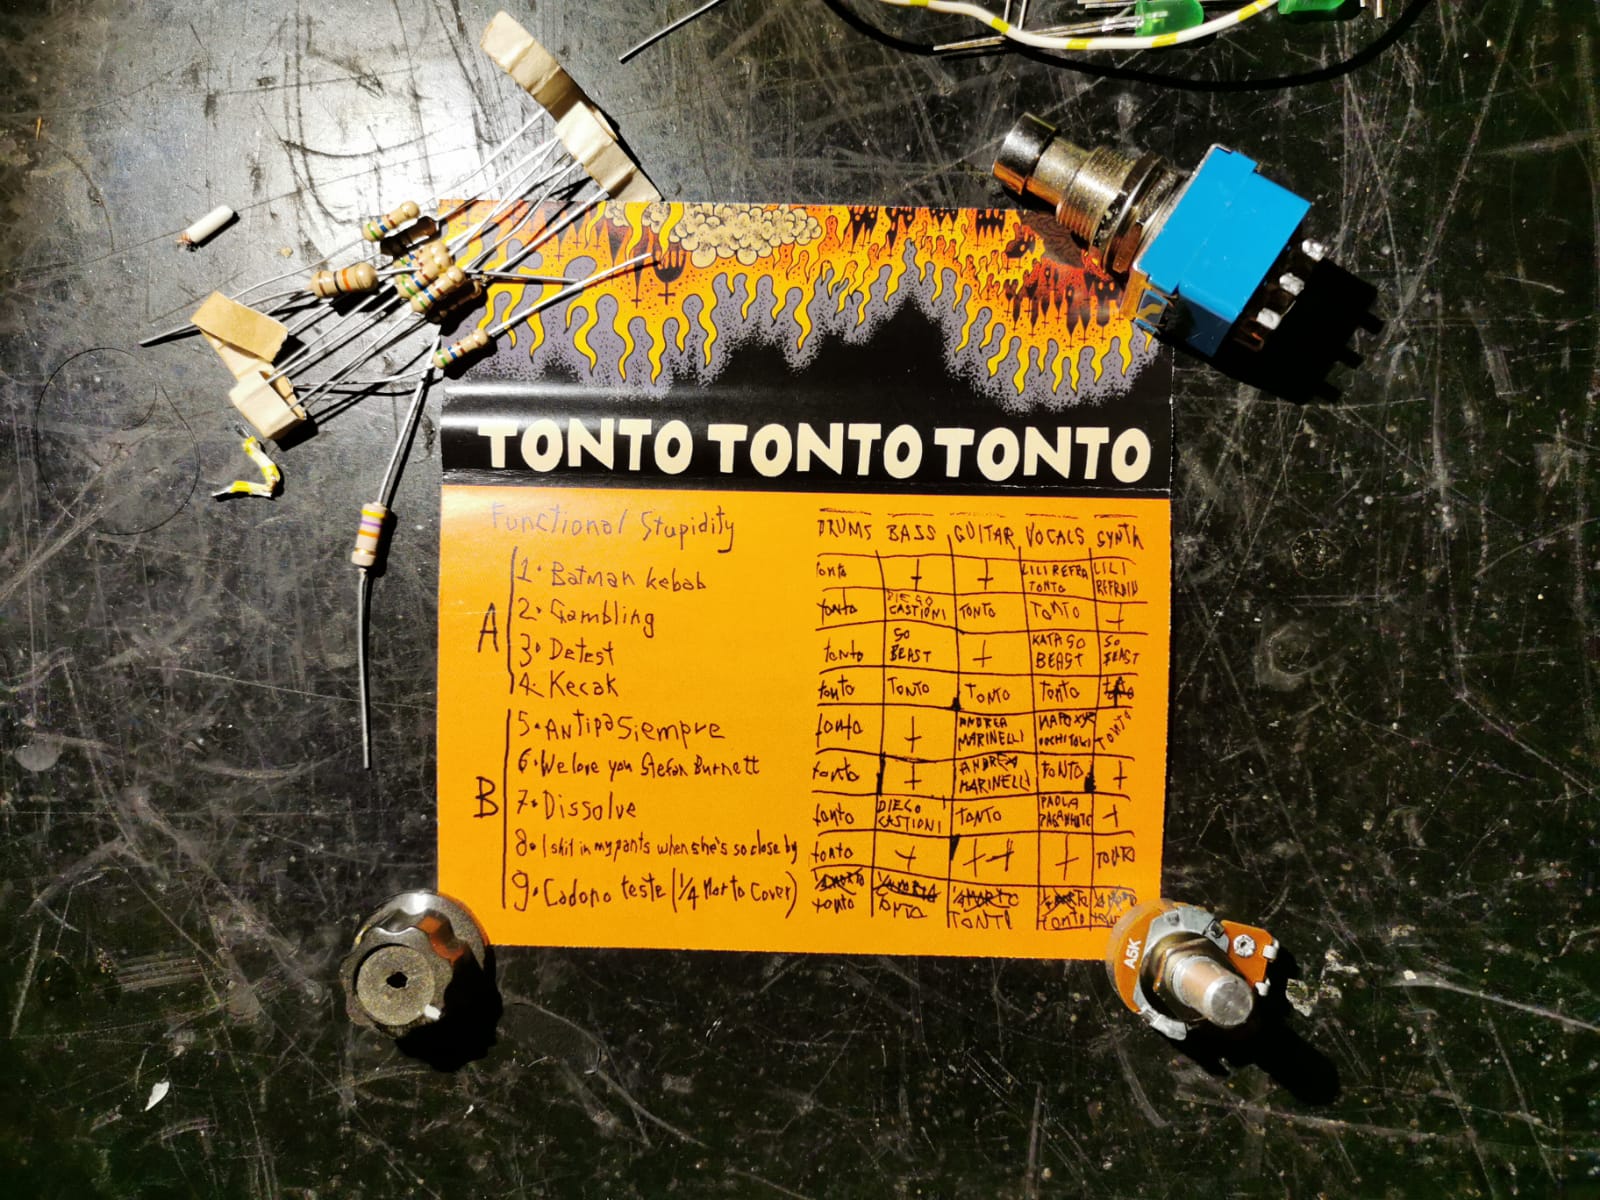 TONTO TONTO TONTO
Functional Stupidity
DRUMS BASS GUITAR VOCALS SYNTH
A
1. Batman kebab
tonto + + LILI REFRA TONTO LILI REFROID
2. Gambling
tonto DIEGO CASTIONI TONTO TONTO +
3. Detest
tonto SO BEAST + KATA SO BEAST SO BEAST
4. Kecak
tonto TONTO TONTO tonto
B
5. Antipasiempre
tonto + ANDREA MARINELLI TONTO
6. We love you Stefan Burnett
tonto + ANDREA MARINELLI TONTO +
7. Dissolve
tonto DIEGO CASTIONI TONTO PAOLA +
8. I shit in my pants when she's so close by
tonto + + + TONTO
9. Cadono teste (1/4 Morto Cover)
tonto TONTO TONTO tonto
A5K